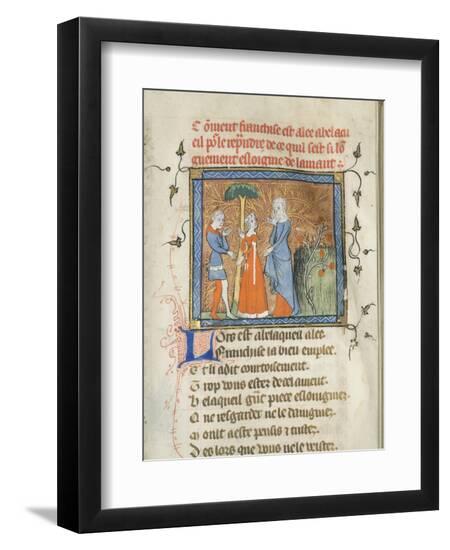 Cōment franchise est alee a belacu
eil por le reprēdre de ce quil sest si lō
guement eslongie de lamant
Lors est a belaqueil alee
Franchise la bien emplee
Et li a dit courtoisement
Trop vous estes de cel amient
Belaqueil grāt piece eslongniez
Que resgarder ne le daingniez
Mont a este pensis et tristes
Des lors que vous ne le veistes